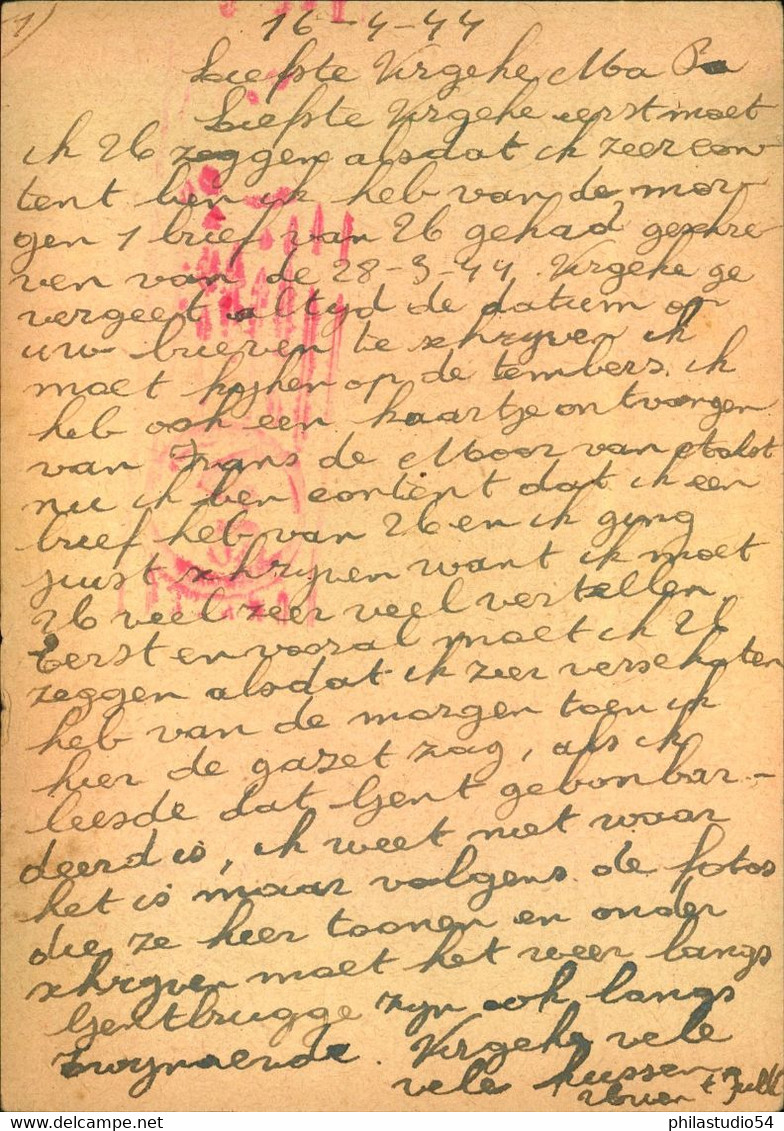 1)
16-4-44
Liefste Virgeke Ma Pa
Liefste Virgeke eerst moet
ik U zeggen alsdat ik zeer con-
tent ben ik heb van de mor-
gen 1 brief van U gehad geschre-
ven van de 28-3-44. Virgeke ge
vergeet altyd de datum op
uw brieven te schryven ik
moet kyken op de tembers. ik
heb ook een kaartje ontvangen
van Frans de Moor van
nu ik ben content dat ik een
brief heb van U en ik ging
juist schryven want ik moet
U veel zeer veel vertellen.
Eerst en vooral moet ik U
zeggen alsdat ik zeer verschoten
heb van de morgen toen ik
hier de gazet zag, als ik
leesde dat Gent gebonbar-
deerd is, ik weet niet waar
het is maar volgens de fotos
die ze hier toonen en onder
schryven moet het weer langs
Gentbrugge zyn ook langs
Zwynaerde. Virgeke vele
vele kussen
Uwen
philastudio54